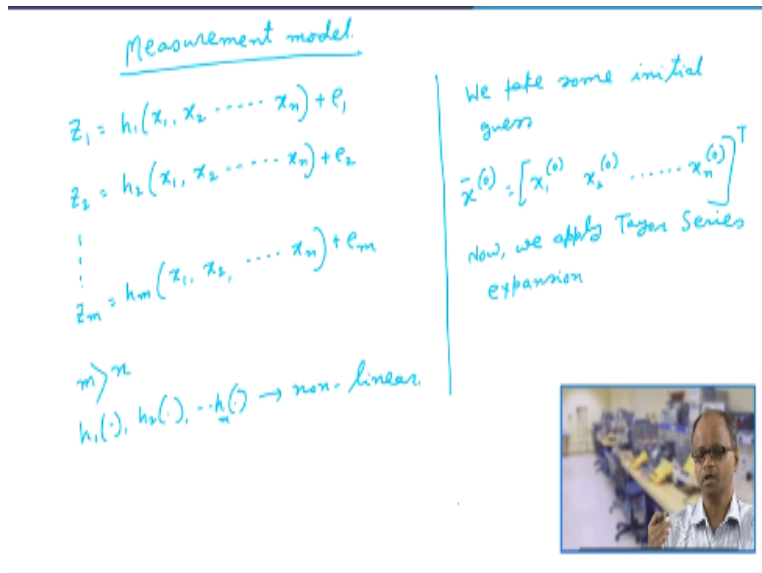 Measurement model.
z₁ = h₁(x₁, x₂ ..... xₙ) + e₁
z₂ = h₂(x₁, x₂ ...... xₙ) + e₂
zₘ = hₘ(x₁, x₂, .... xₙ) + eₘ
m > n
h₁(·), h₂(·), ..hₙ(·) → non-linear.
We take some initial
guess
x̄⁽⁰⁾ = [x₁⁽⁰⁾ x₂⁽⁰⁾ ...... xₙ⁽⁰⁾]ᵀ
Now, we apply Tayor Series
expansion